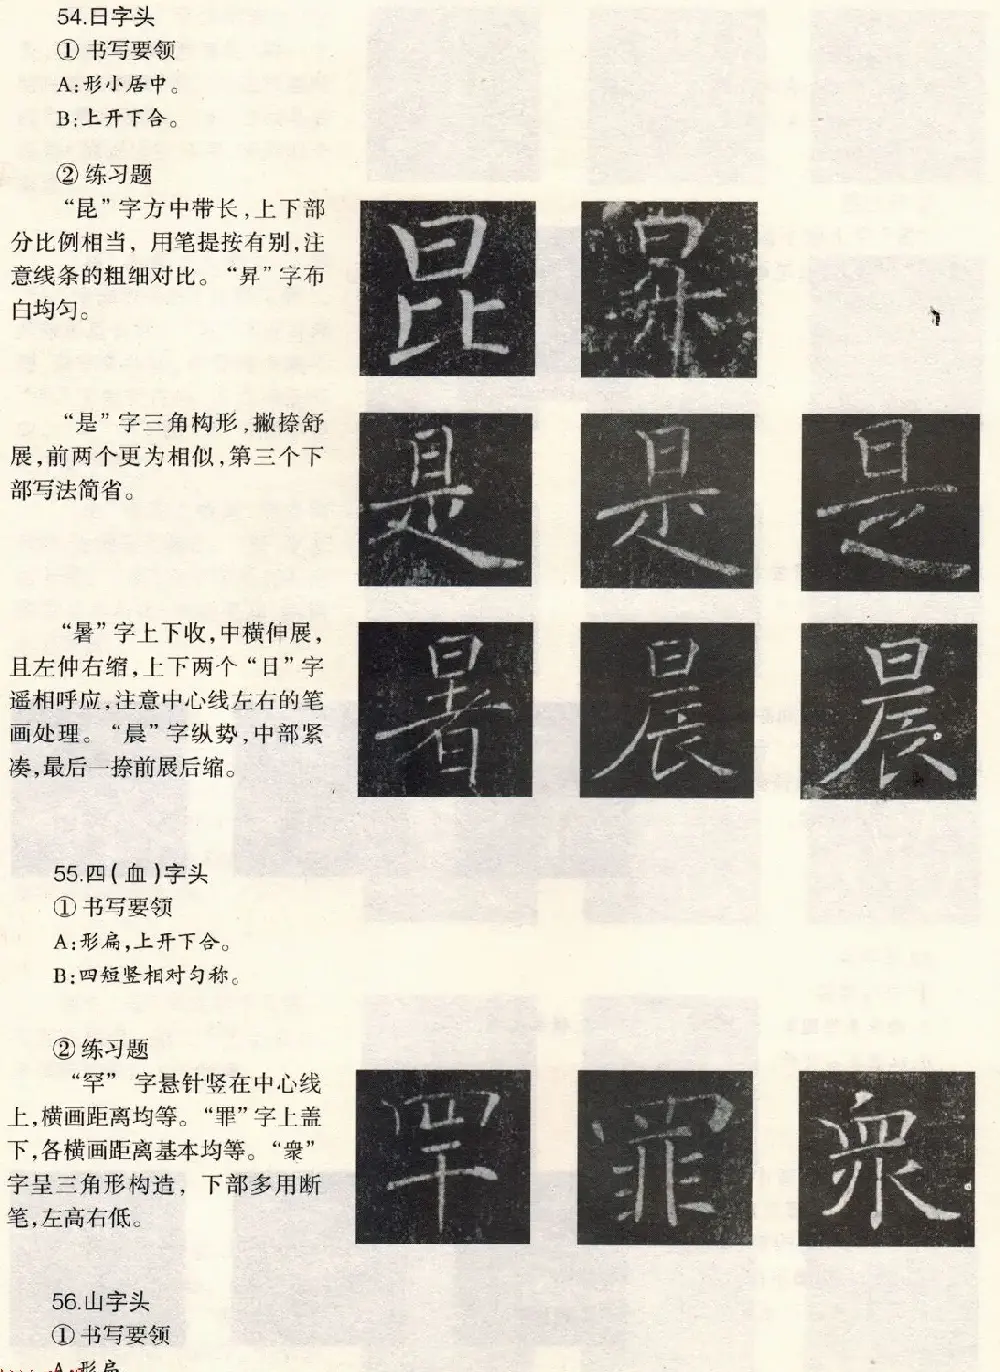 54.日字头
① 书写要领
A:形小居中。
B:上开下合。
② 练习题
“昆”字方中带长,上下部
分比例相当，用笔提按有别,注
意线条的粗细对比。“昇”字布
白均匀。
昆 昇
“是”字三角构形,撇捺舒
展,前两个更为相似,第三个下
部写法简省。
是 是 是
“暑”字上下收,中横伸展,
且左伸右缩,上下两个“日”字
遥相呼应,注意中心线左右的笔
画处理。“晨”字纵势,中部紧
凑,最后一捺前展后缩。
暑 晨 晨
55.四(血)字头
① 书写要领
A:形扁,上开下合。
B:四短竖相对匀称。
② 练习题
“罕”字悬针竖在中心线
上,横画距离均等。“罪”字上盖
下,各横画距离基本均等。“衆”
字呈三角形构造，下部多用断
笔,左高右低。
罕 罪 衆
56.山字头
① 书写要领
A:形扁